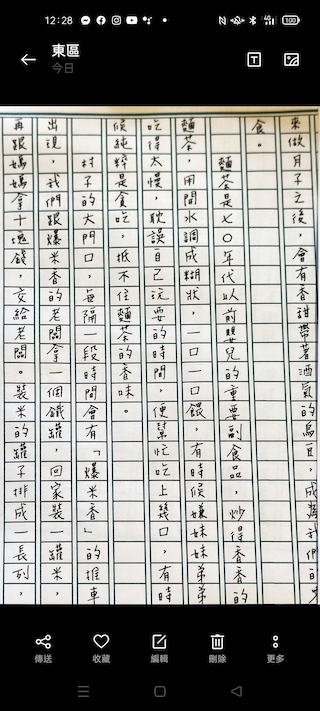 12:28
4G
100
東區
今日
來做月子之後,會有香甜帶著酒氣的烏豆,成為我們的
食。
麵茶是七〇年代以前嬰兒的重要副食品,炒得香香的
麵茶,用開水調成糊狀,一口一口餵,有時候嫌妹妹弟弟
吃得太慢,耽誤自己玩耍的時間,便幫忙吃上幾口,有時
候純粹是貪吃,抵不住麵茶的香味。
村子的大門口,每隔一段時間會有「爆米香」的推車
出現,我們跟爆米香的老闆拿一個鐵罐,回家裝一罐米,
再跟媽媽拿十塊錢,交給老闆。裝米的罐子排成一長列,
傳送
收藏
編輯
刪除
更多